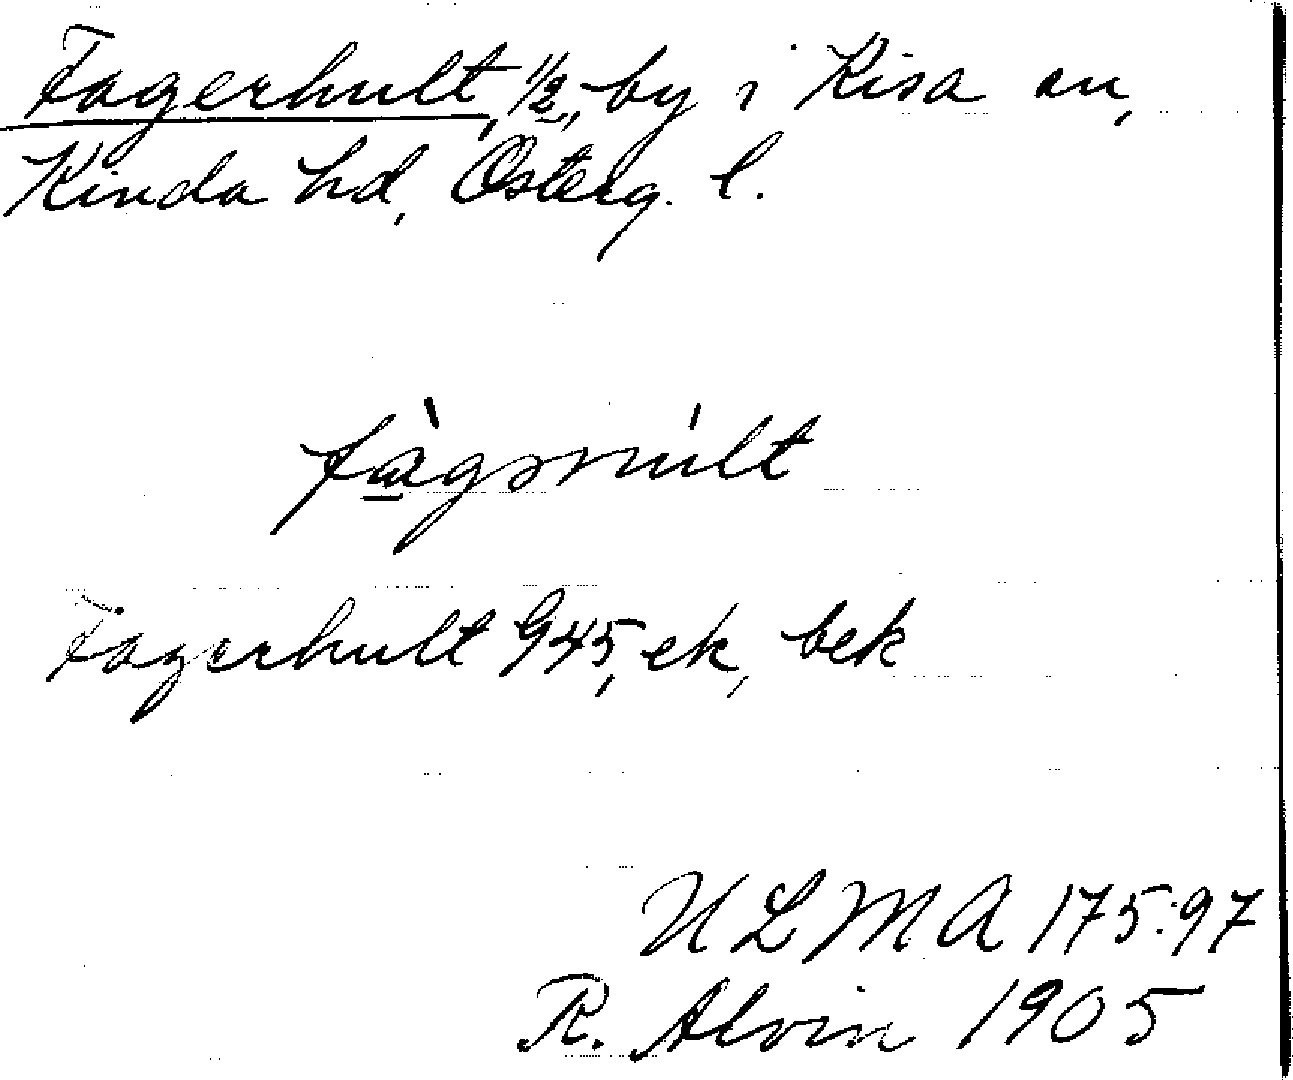 Fagerhult, 1/2, by i Kisa sn,
Kinda hd, Österg. l.
Fagerhult G45, ek, bek
ULMA 175:97
R. Alvin 1905